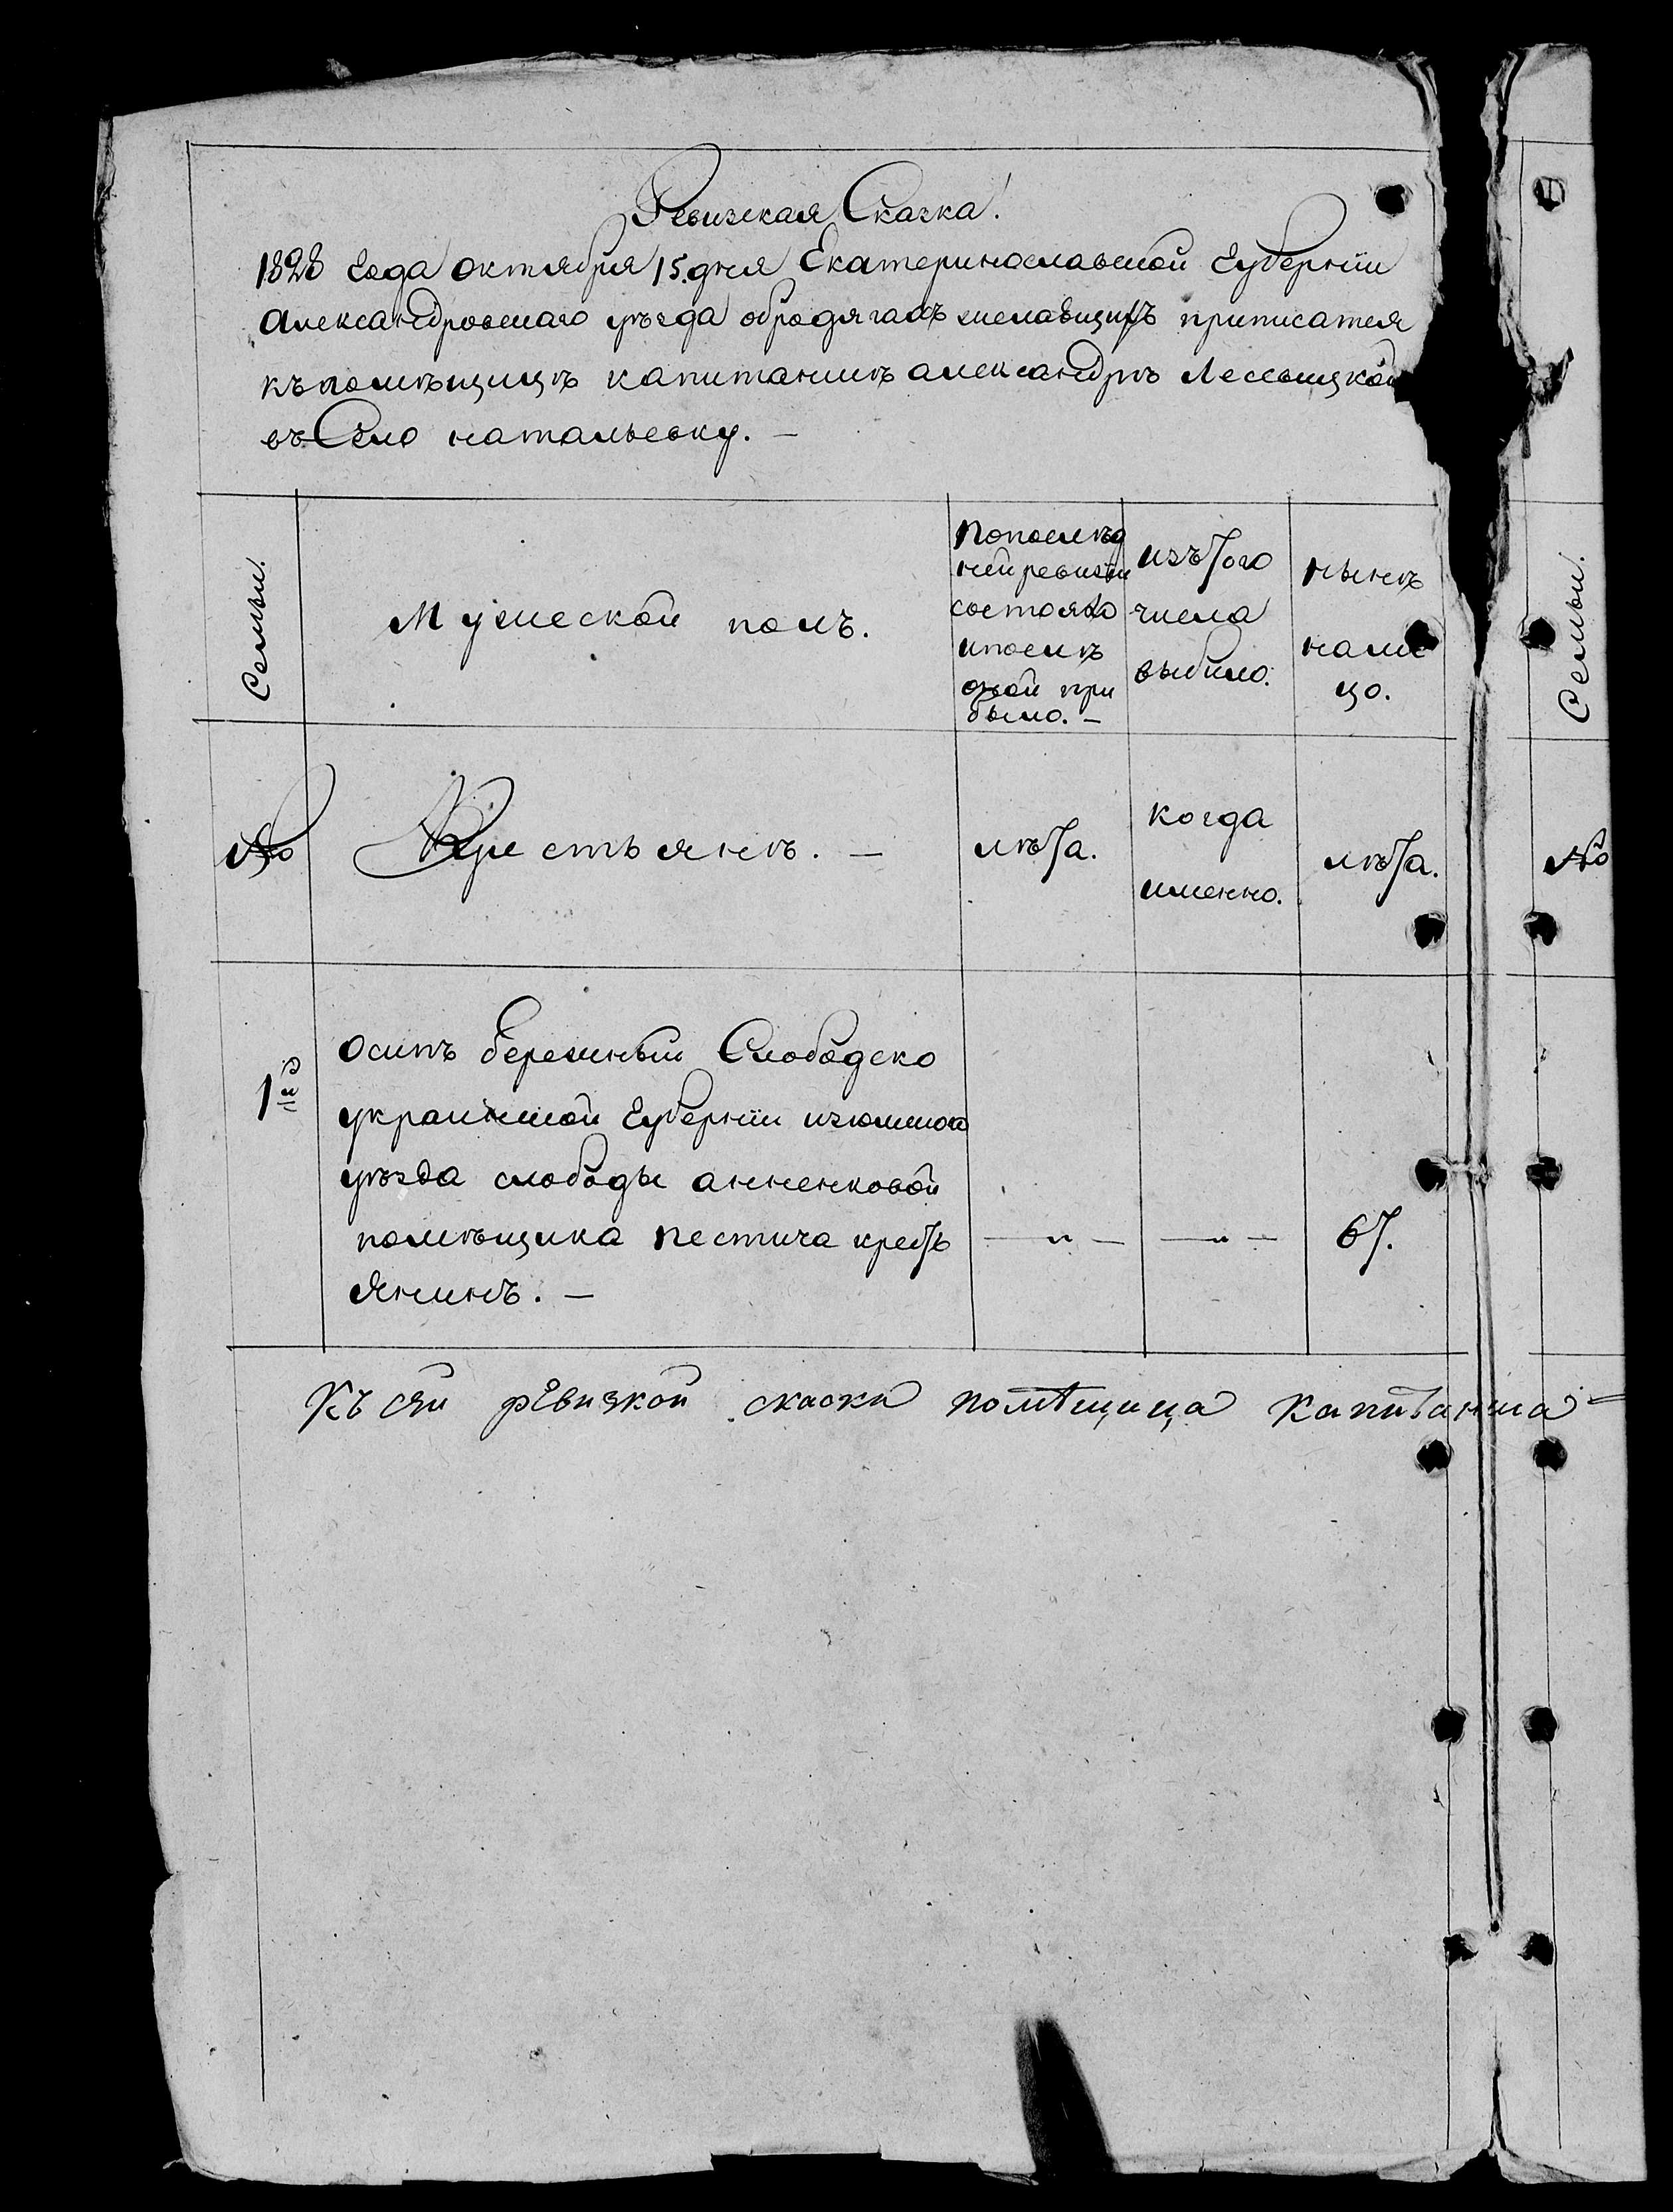 Ревизская Сказка!
1828 года октября 15. дня Екатеринославской Губернии
Александровскаго уѣзда обродягахъ желающихъ приписатся
къ помѣщицѣ капитаншѣ александрѣ
въ Село натальевку. —
Семьи.
Мужеской полъ.
Попослѣд
ней ревизіи
состояло
ипослѣ
оной при
было. —
изъ того
числа
выбыло.
нынѣ
нали
цо.
Семьи.
№
Крестьянѣ. —
лѣта.
когда
именно.
лѣта.
№
1й
осипъ бережный Слободско
украинской Губерніи изюмского
уѣзда слободы анненковой
помѣщика пестича кресть — „ — — „ — 67.
янинъ. —
Къ сей ревизкой скаски помѣщица капитанша